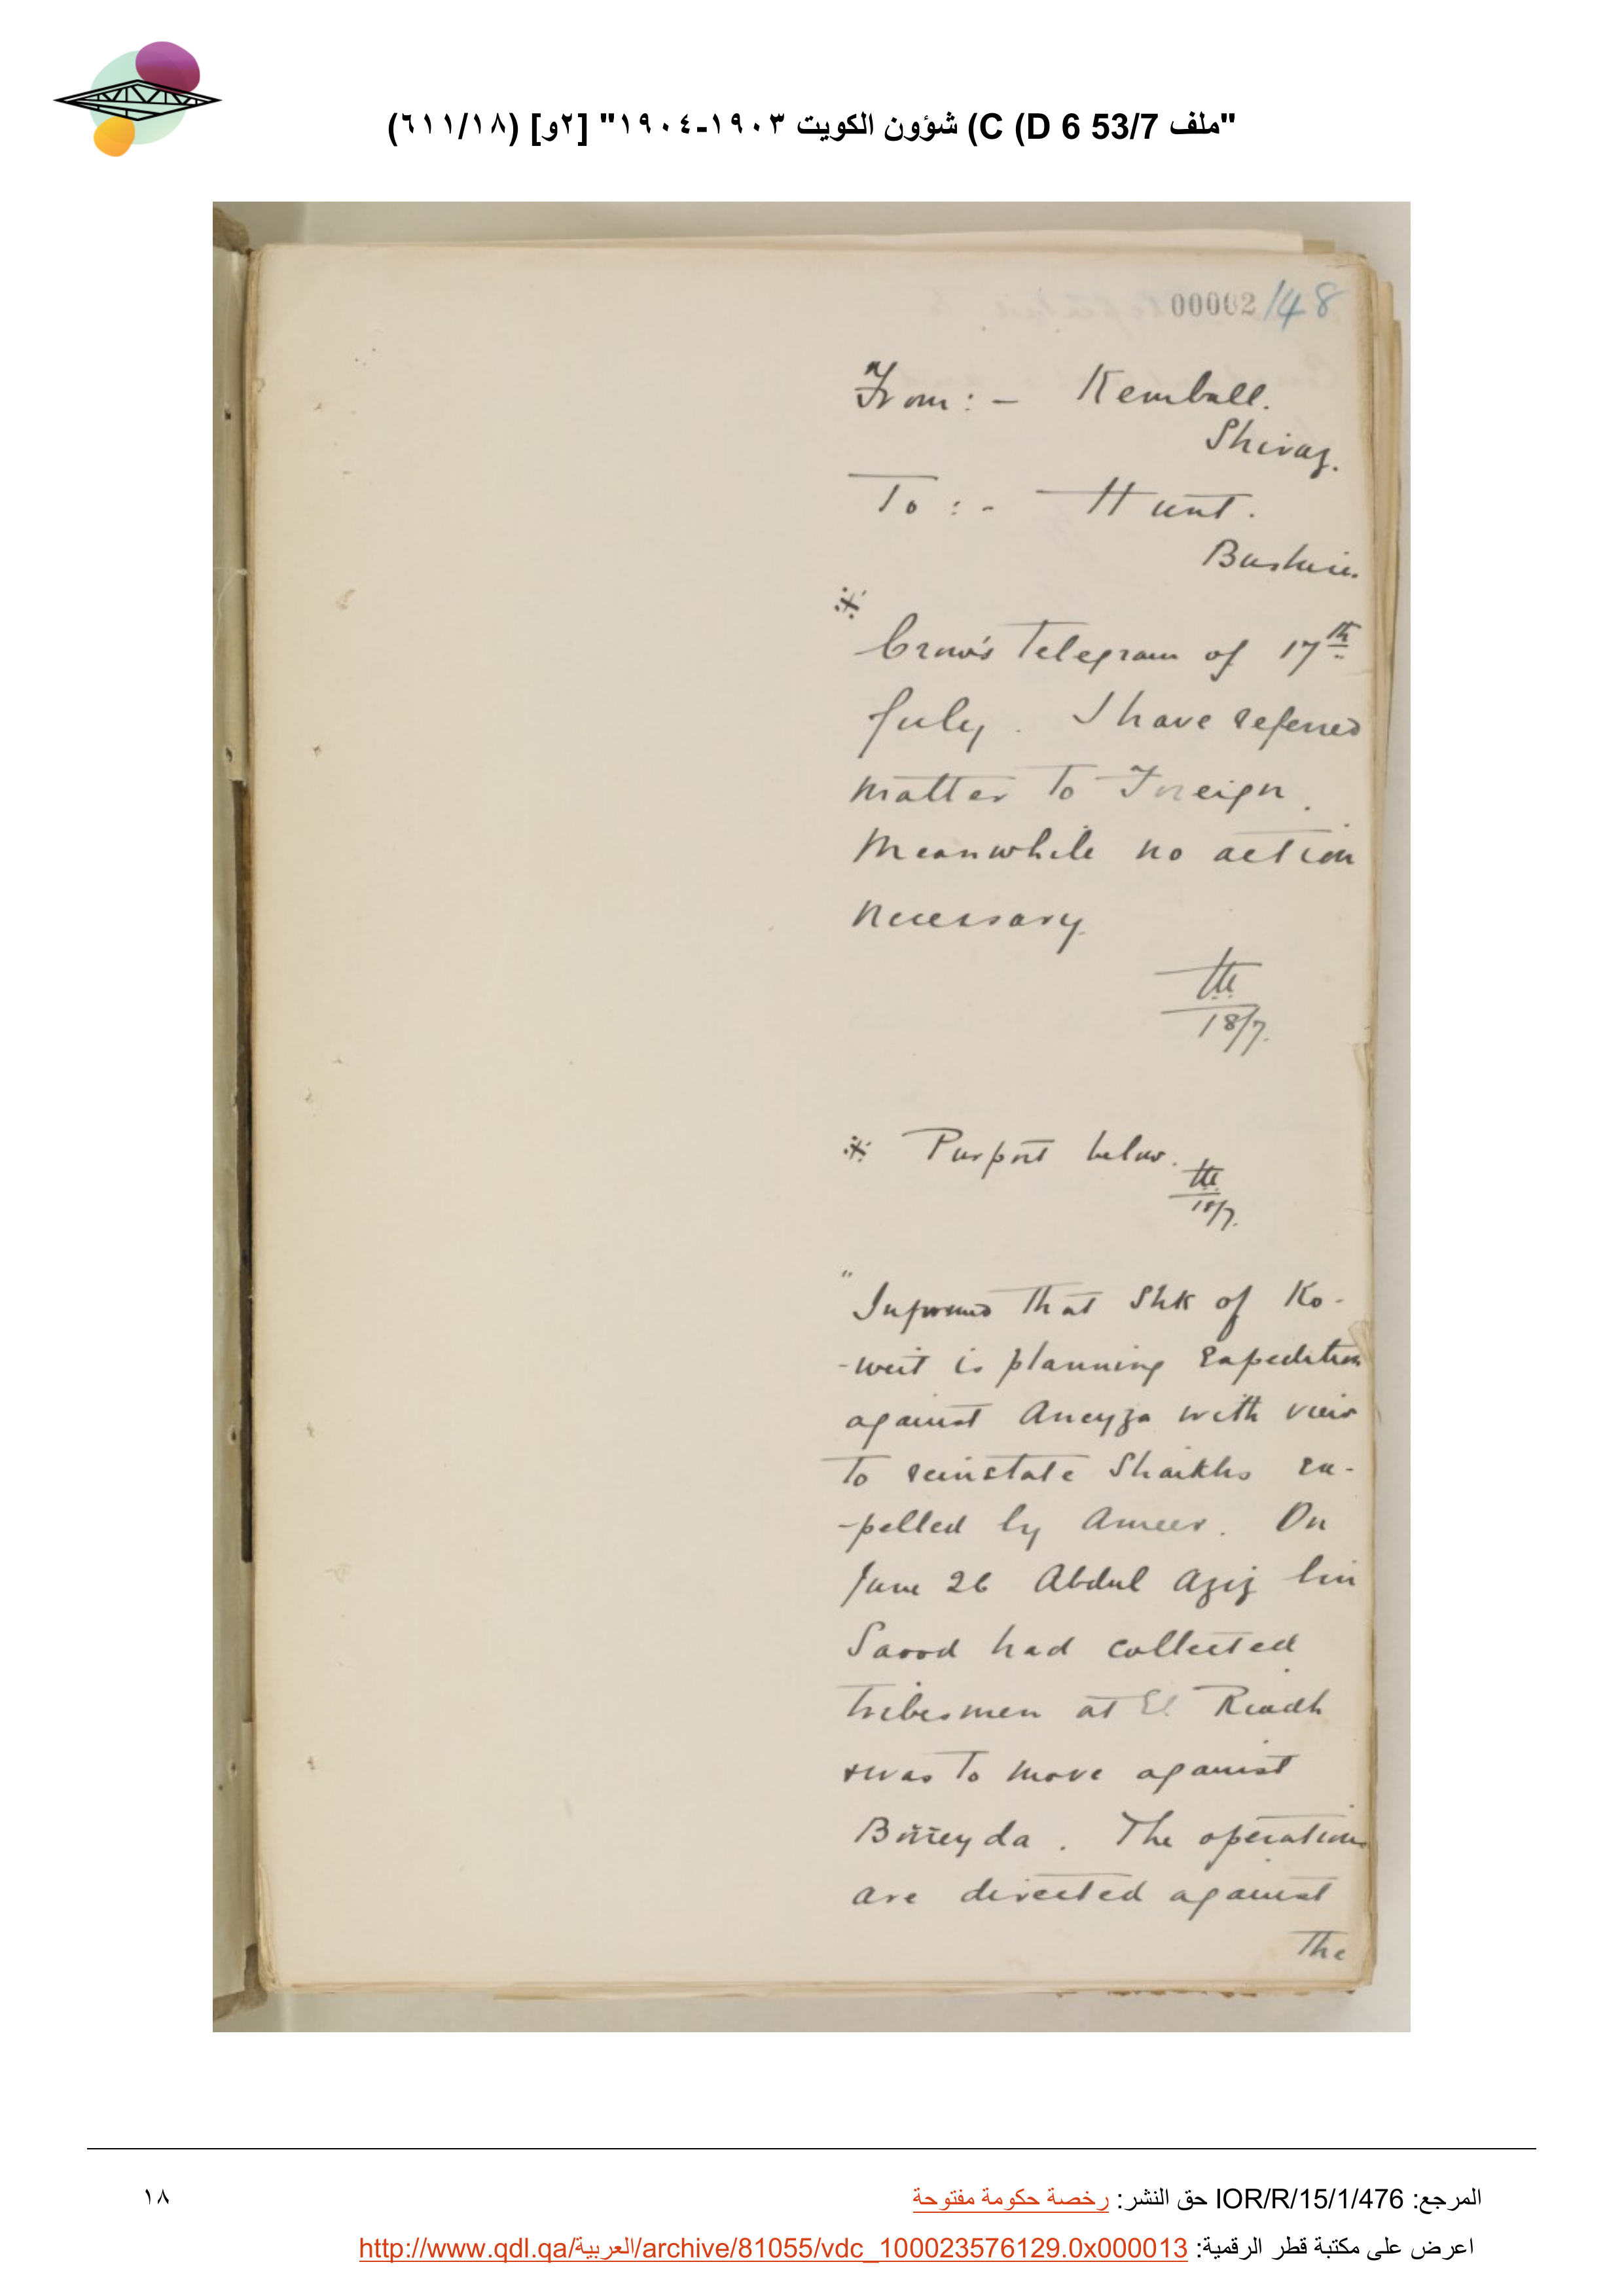 "ملف 53/7 C (D 6) شؤون الكويت ١٩٠٣-١٩٠٤" [٢و] (٦١١/١٨)
00002 /148
From:- Kemball.
Shiraz.
To:- Hunt.
Bushire.
※
Crow's Telegram of 17th
July. I have referred
matter to Foreign.
Meanwhile no action
necessary.
18/7.
※ Purport below.
18/7.
"Informed that Shk of Ko-
-weit is planning Expedition
against Aneyza with view
to reinstate Shaikhs ex-
-pelled by Ameer. On
June 26 Abdul Aziz bin
Saood had collected
tribesmen at El Riadh
& was to move against
Bireyda. The operations
are directed against
The
المرجع: IOR/R/15/1/476 حق النشر: رخصة حكومة مفتوحة
١٨
اعرض على مكتبة قطر الرقمية: http://www.qdl.qa/العربية/archive/81055/vdc_100023576129.0x000013